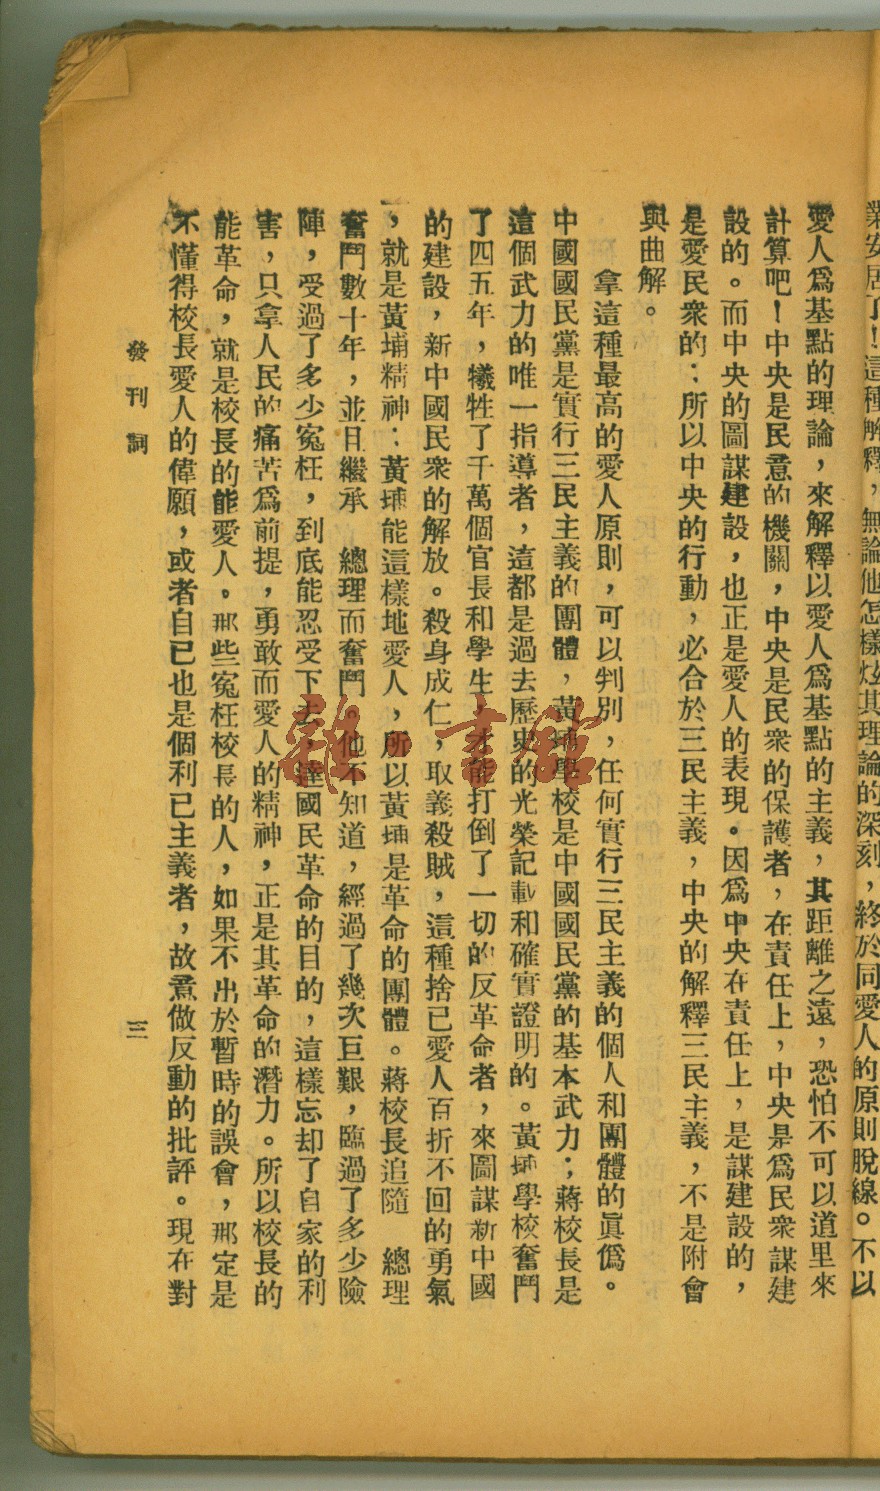 業安居了！這種解釋，無論他怎樣炫其理論的深刻，終於同愛人的原則脫線。不以
愛人爲基點的理論，來解釋以愛人爲基點的主義，其距離之遠，恐怕不可以道里來
計算吧！中央是民意的機關，中央是民衆的保護者，在責任上，中央是爲民衆謀建
設的。而中央的圖謀建設，也正是愛人的表現。因爲中央在責任上，是謀建設的，
是愛民衆的；所以中央的行動，必合於三民主義，中央的解釋三民主義，不是附會
與曲解。
拿這種最高的愛人原則，可以判別，任何實行三民主義的個人和團體的眞僞。
中國國民黨是實行三民主義的團體，黃埔學校是中國國民黨的基本武力；蔣校長是
這個武力的唯一指導者，這都是過去歷史的光榮記載和確實證明的。黃埔學校奮鬥
了四五年，犧牲了千萬個官長和學生，才能打倒了一切的反革命者，來圖謀新中國
的建設，新中國民衆的解放。殺身成仁，取義殺賊，這種捨己愛人百折不回的勇氣
，就是黃埔精神；黃埔能這樣地愛人，所以黃埔是革命的團體。蔣校長追隨　總理
奮鬥數十年，並且繼承　總理而奮鬥。他不知道，經過了幾次巨艱，臨過了多少險
陣，受過了多少冤枉，到底能忍受下去，達國民革命的目的，這樣忘却了自家的利
害，只拿人民的痛苦爲前提，勇敢而愛人的精神，正是其革命的潛力。所以校長的
能革命，就是校長的能愛人。那些冤枉校長的人，如果不出於暫時的誤會，那定是
不懂得校長愛人的偉願，或者自已也是個利已主義者，故意做反動的批評。現在對
發刊詞
三
雜·書館